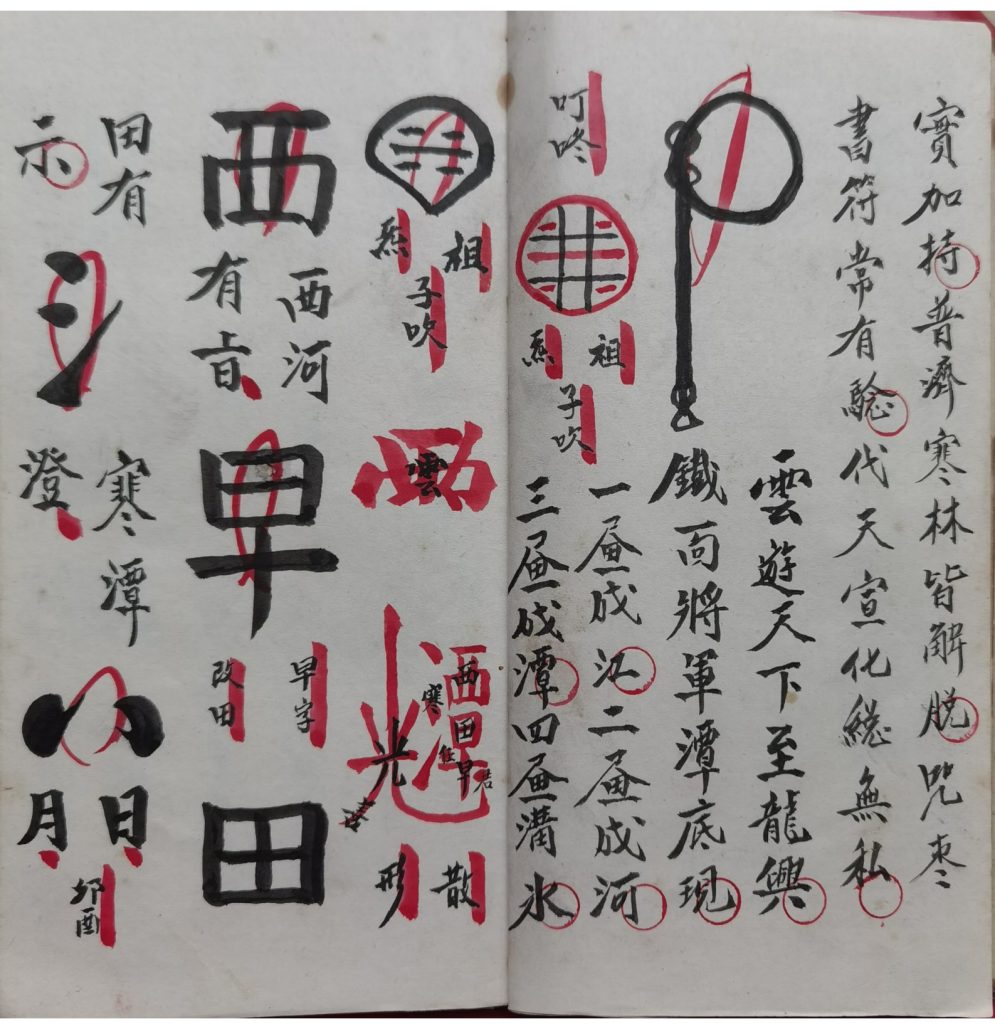 實加持普濟寒林皆解脫咒枣
書符常有驗代天宣化総無私
雲遊天下至龍興
鐵面將軍潭底現
一画成江二画成河
三画成潭四画溝氷
叮咚
祖
炁
子吹
祖
炁
子吹
雲
西田早
寒
光
散
形
西
西河
有旨
早
早字
改田
田
田有
示
寒潭
澄
日
月
卯酉